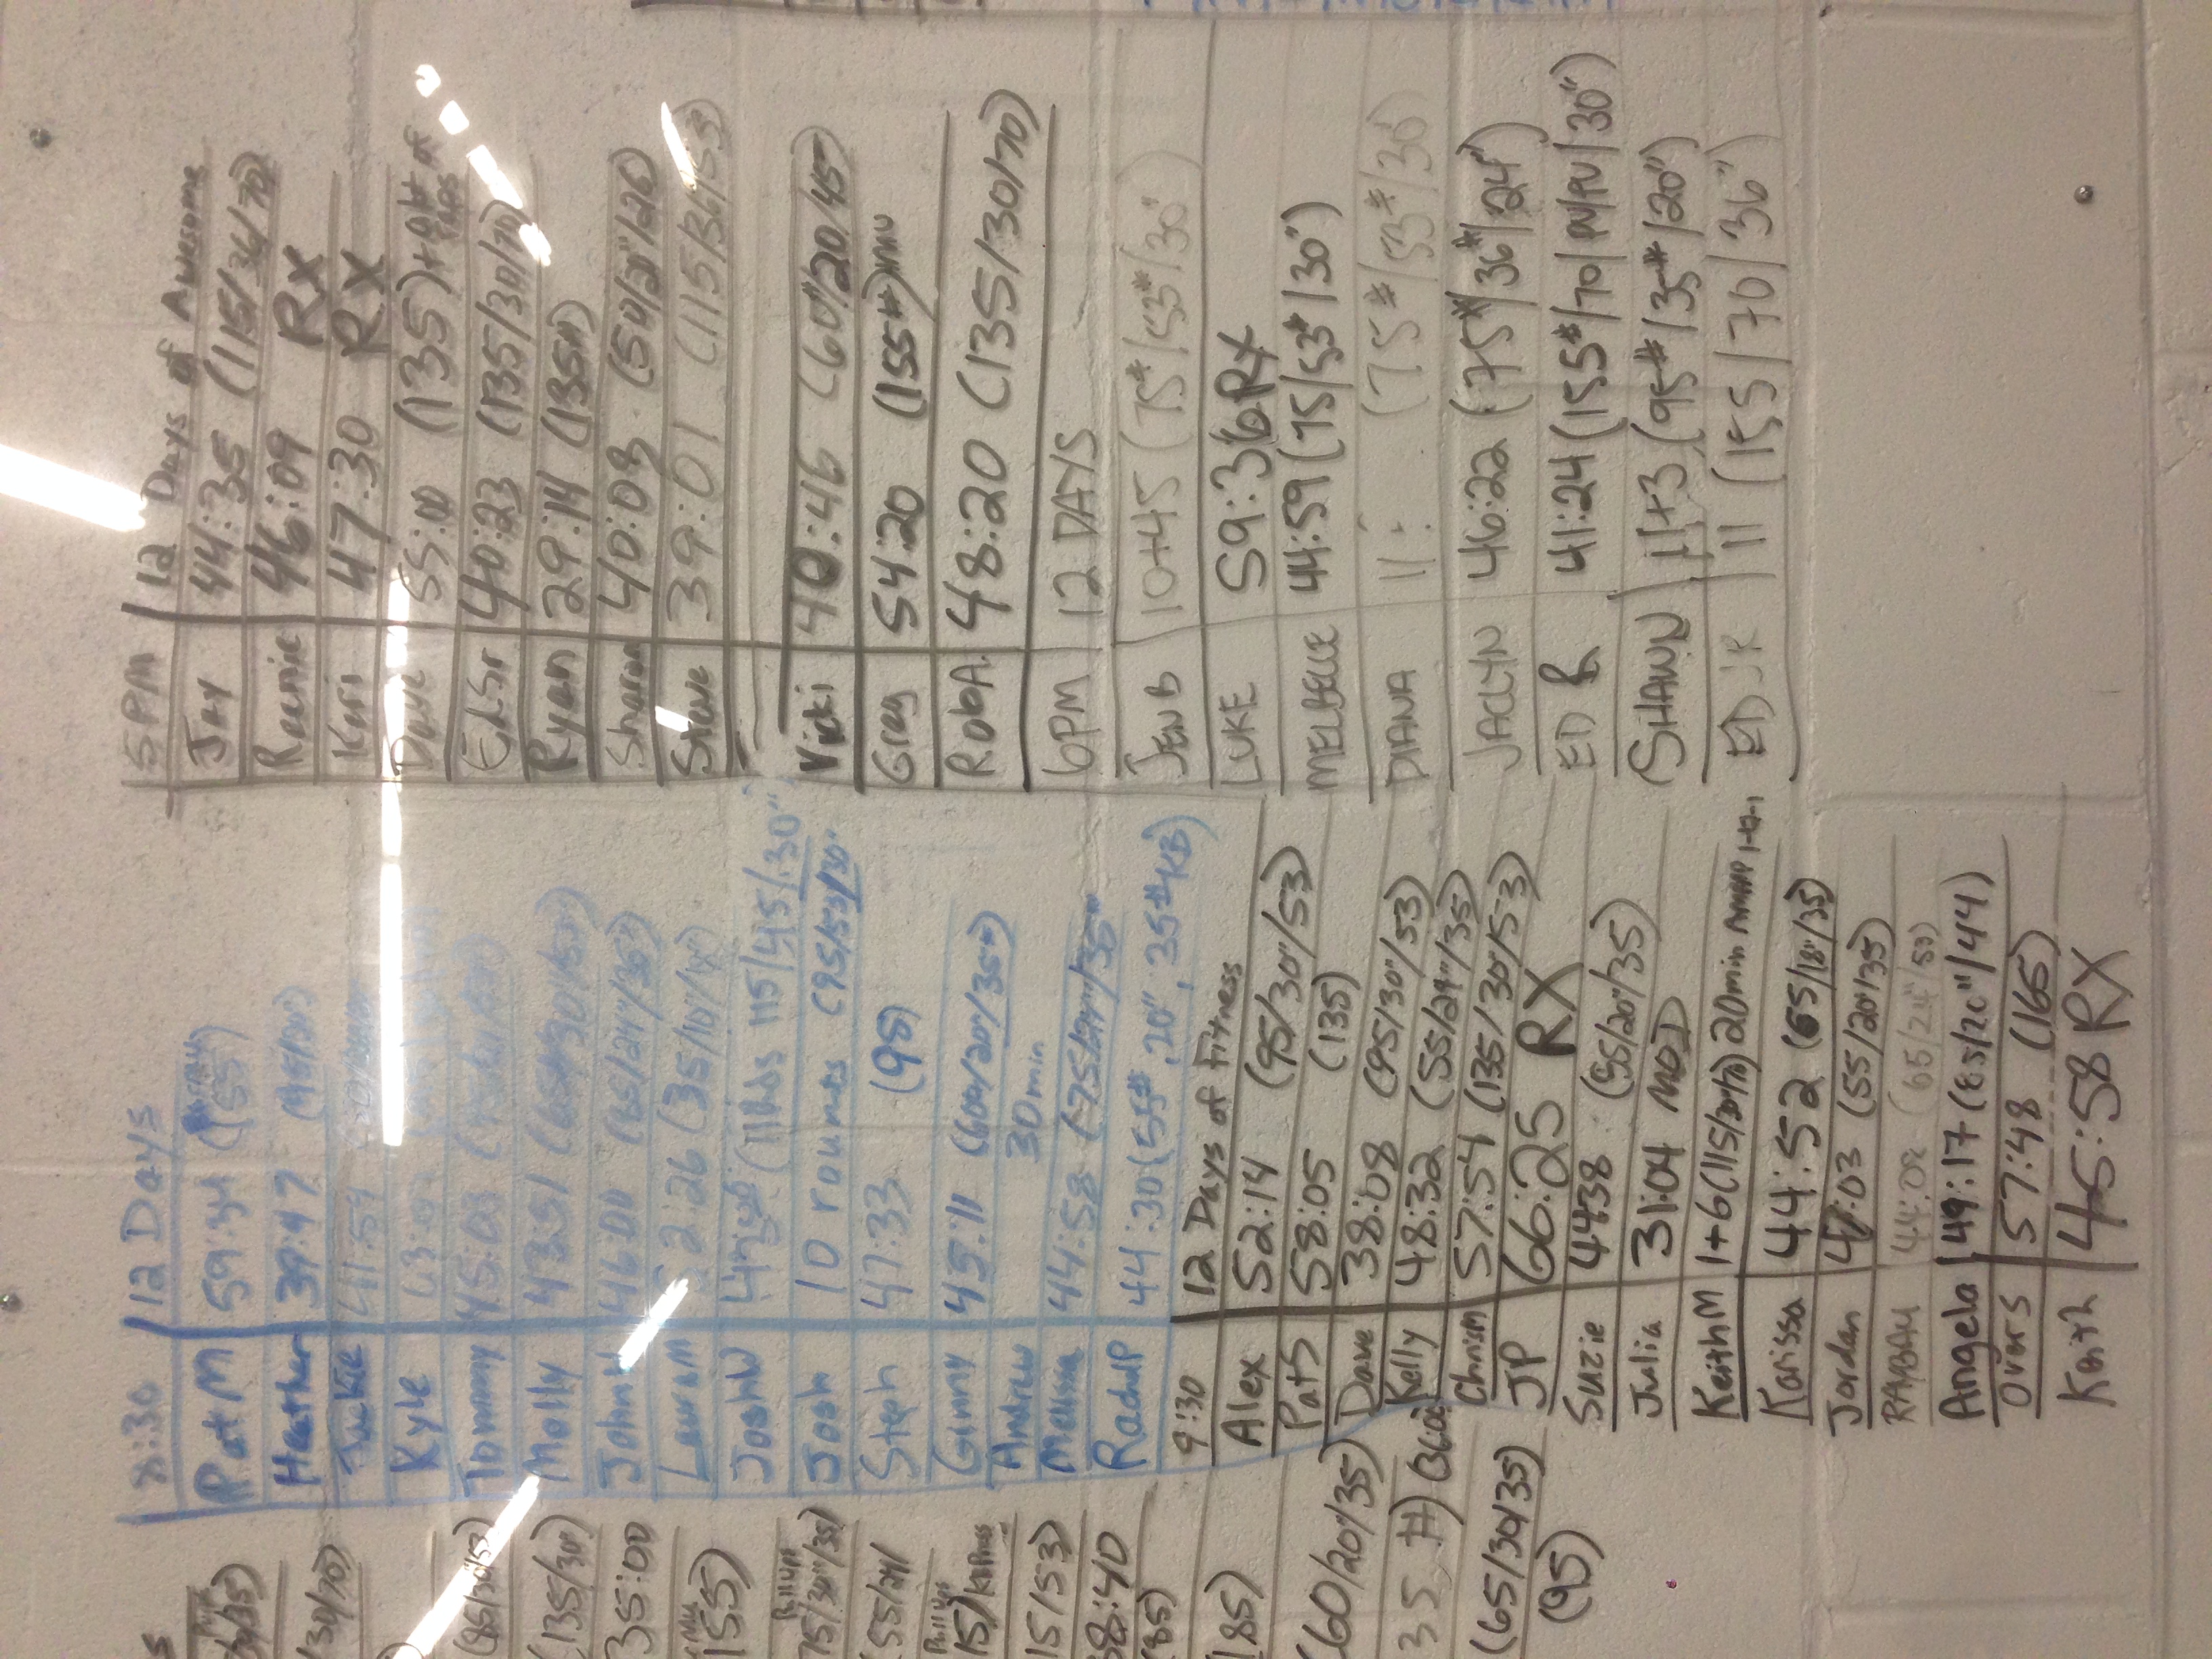 35)
30/70)
(85/30/53)
(135/30")
35:00
155)
Pullups
75/30"/35)
(55/24/
Pullups
15)
15/53)
38:40
(85)
185)
(60/20"/35)
35, H)
(65/30/35)
(95)
8:30 12 Days
Pat M 59:34 (155)
Heather 39:47 (95/30")
Jackie 41:54
Kyle
Tommy 45:03
Molly 43:51 (65#/30/53)
John H 46:01 (65/24"/35)
Laura M 2:26 (35/10"/18)
Josh W (11 lbs 115/45/30")
Josh 10 rounds (95/53/30"
Steph 47:33 (95)
Ginny 45:11 (60#/20"/35#)
Andrew 30min
Melissa 44:58 (75#/24"/35#
Radu P 44:30 (55#, 20", 35#KB)
9:30 12 Days of Fitness
Alex 52:14 (95/30"/53)
Pat S 58:05 (135)
Dave 38:08 (95/30"/53)
Kelly 48:32 (55/24"/35)
Chris M 57:54 (135/30"/53)
JP 66:25 RX
Suzie 44:38 (55/20"/35)
Julia 31:04 MOD
Keith M 1+6 (115/30/70) 20min AMRAP 1-12-1
Karissa 44:52 (65/18"/35)
Jordan 47:03 (55/20"/35)
44:02 (65/24"/53)
Angela 49:17 (85/20"/44)
Ovars 57:48 (165)
Keith 45:58 RX
5 PM 12 Days of Awesome
Jay 44:35 (115/36/70)
Reenie 46:09 RX
Keri 47:30 RX
Dave 55:00 (135) +
Ed Sr 40:23 (135/30/70)
Ryan 29:14 (135#)
Sharon 40:08 (50/20"/26)
Steve 39:01 (115/36/53)
Vicki 40:46 (60#/20/45)
Greg 54:20 (155#)
Rob A. 48:20 (135/30/70)
6PM 12 DAYS
JEN B 10+45 (75#/53#/30")
LUKE 59:36 RX
MELBELLE 44:59 (75/53#/30")
DIANA 11: (75#/53#/30")
JACLYN 46:22 (75#/36#/24")
ED R 41:24 (155#/70/PU/PU/30")
SHAWN 11+3 (95#/35#/20")
ED JR 11 (155/70/36")